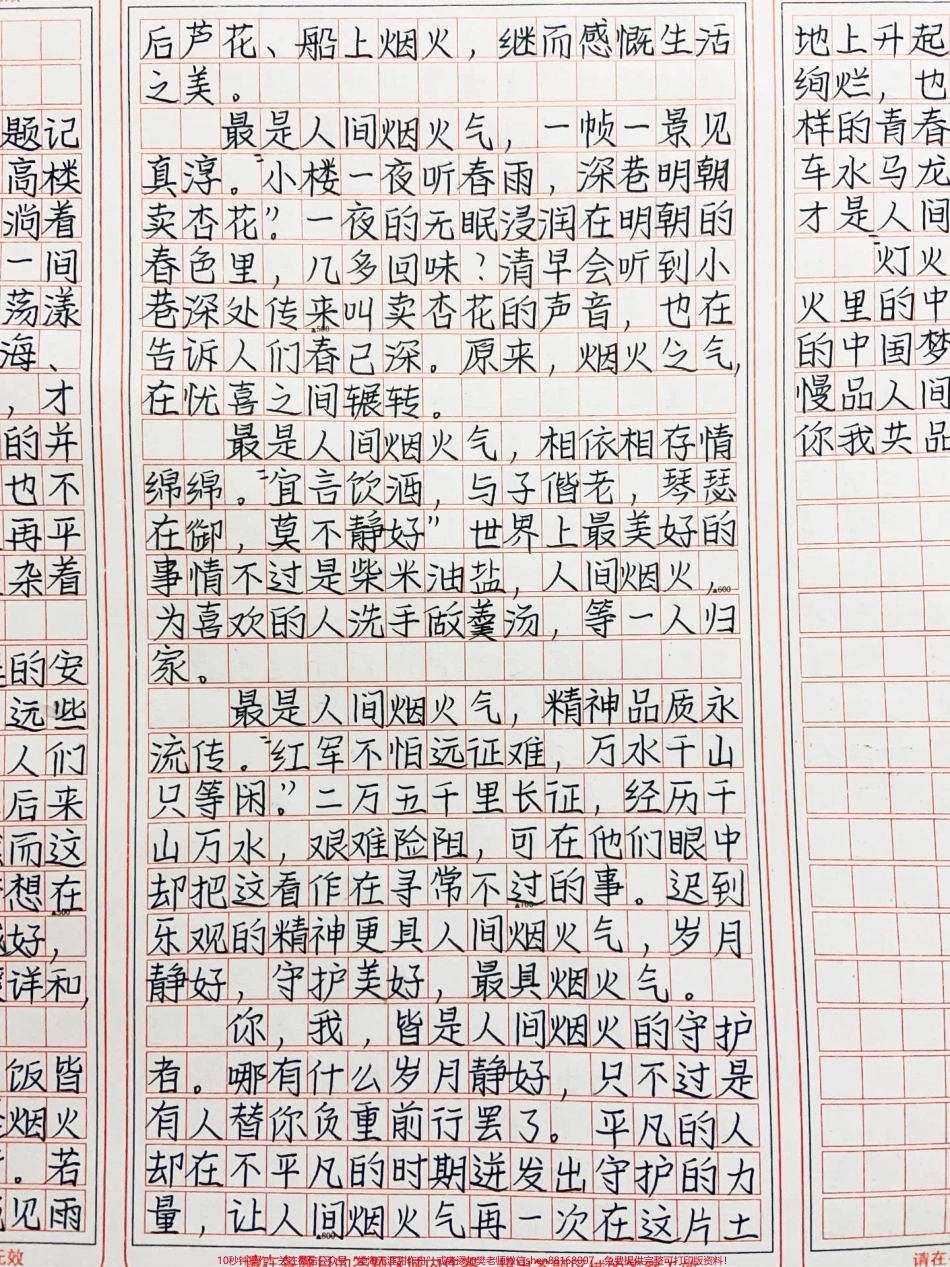 题记
高楼
淌着
一间
荡漾
海、
，才
的并
也不
再平
杂着
的安
远些
人们
后来
而这
想在
好，
详和，
饭皆
烟火
。若
见雨
后芦花、船上烟火，继而感慨生活
之美。
最是人间烟火气，一帧一景见
真淳。“小楼一夜听春雨，深巷明朝
卖杏花”。一夜的无眠浸润在明朝的
春色里，几多回味？清早会听到小
巷深处传来叫卖杏花的声音，也在
告诉人们春已深。原来，烟火之气，
在忧喜之间辗转。
最是人间烟火气，相依相存情
绵绵。“宜言饮酒，与子偕老，琴瑟
在御，莫不静好” 世界上最美好的
事情不过是柴米油盐，人间烟火，
▲600
为喜欢的人洗手做羹汤，等一人归
家。
最是人间烟火气，精神品质永
流传。“红军不怕远征难，万水千山
只等闲”。二万五千里长征，经历千
山万水，艰难险阻，可在他们眼中
却把这看作在寻常不过的事。迟到
乐观的精神更具人间烟火气，岁月
静好，守护美好，最具烟火气。
你，我，皆是人间烟火的守护
者。哪有什么岁月静好，只不过是
有人替你负重前行罢了。平凡的人
却在不平凡的时期迸发出守护的力
量，让人间烟火气再一次在这片土
▲800
地上升起
绚烂，也
样的青春
车水马龙
才是人间
“灯火
火里的中
的中国梦
慢品人间
你我共品
无效
请在各